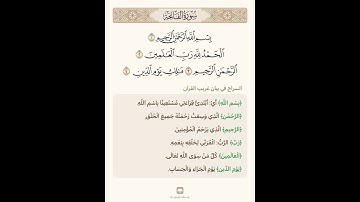 سُورَةُ الفَاتِحَةِ
بِسْمِ ٱللَّهِ ٱلرَّحْمَٰنِ ٱلرَّحِيمِ ١
ٱلْحَمْدُ لِلَّهِ رَبِّ ٱلْعَٰلَمِينَ ٢
ٱلرَّحْمَٰنِ ٱلرَّحِيمِ ٣ مَٰلِكِ يَوْمِ ٱلدِّينِ ٤
السراج في بيان غريب القرآن
﴿بِسْمِ اللَّهِ﴾ أَيْ: أَبْتَدِئُ قِرَاءَتِي مُسْتَعِينًا بِاسْمِ اللَّهِ.
﴿الرَّحْمَنِ﴾ الَّذِي وَسِعَتْ رَحْمَتُهُ جَمِيعَ الْخَلْقِ.
﴿الرَّحِيمِ﴾ الَّذِي يَرْحَمُ الْمُؤْمِنِينَ.
﴿رَبِّ﴾ الرَّبُّ: الْمُرَبِّي لِخَلْقِهِ بِنِعَمِهِ.
﴿الْعَالَمِينَ﴾ كُلِّ مَنْ سِوَى اللَّهِ تَعَالَى.
﴿يَوْمِ الدِّينِ﴾ يَوْمِ الْجَزَاءِ وَالْحِسَابِ.